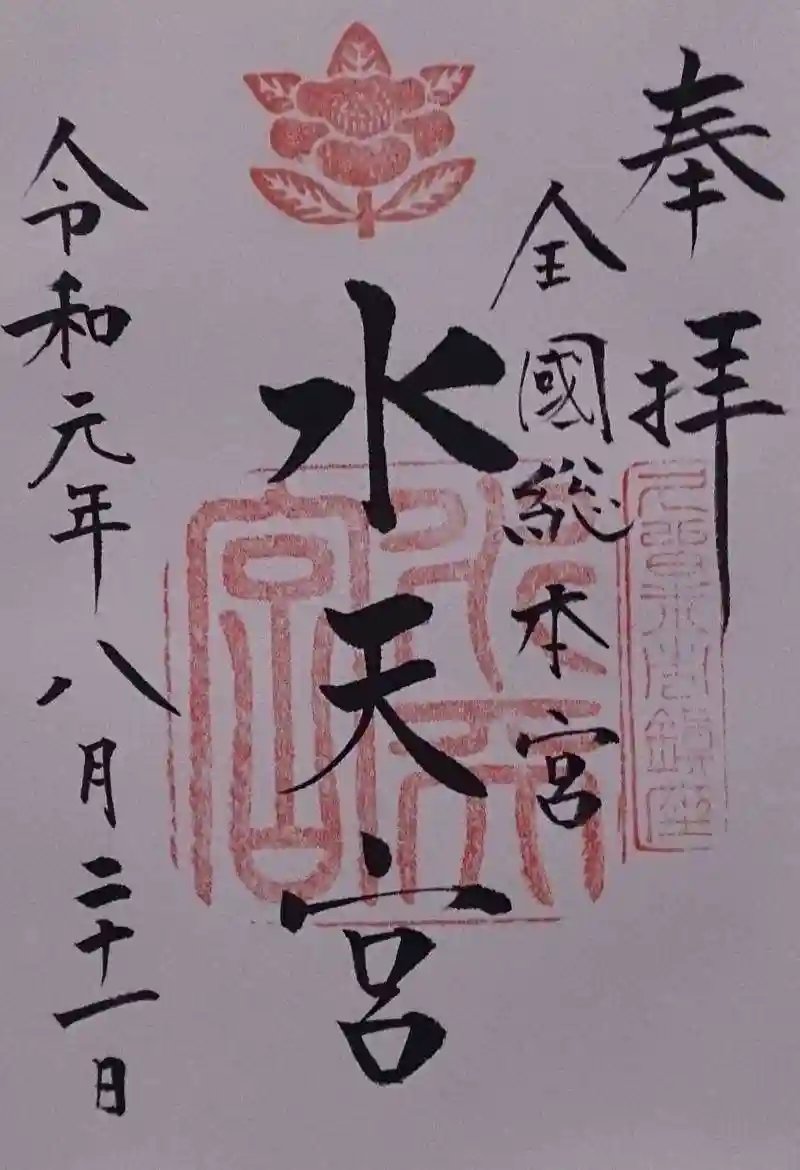 奉拝
全國総本宮
水天宮
令和元年八月二十一日